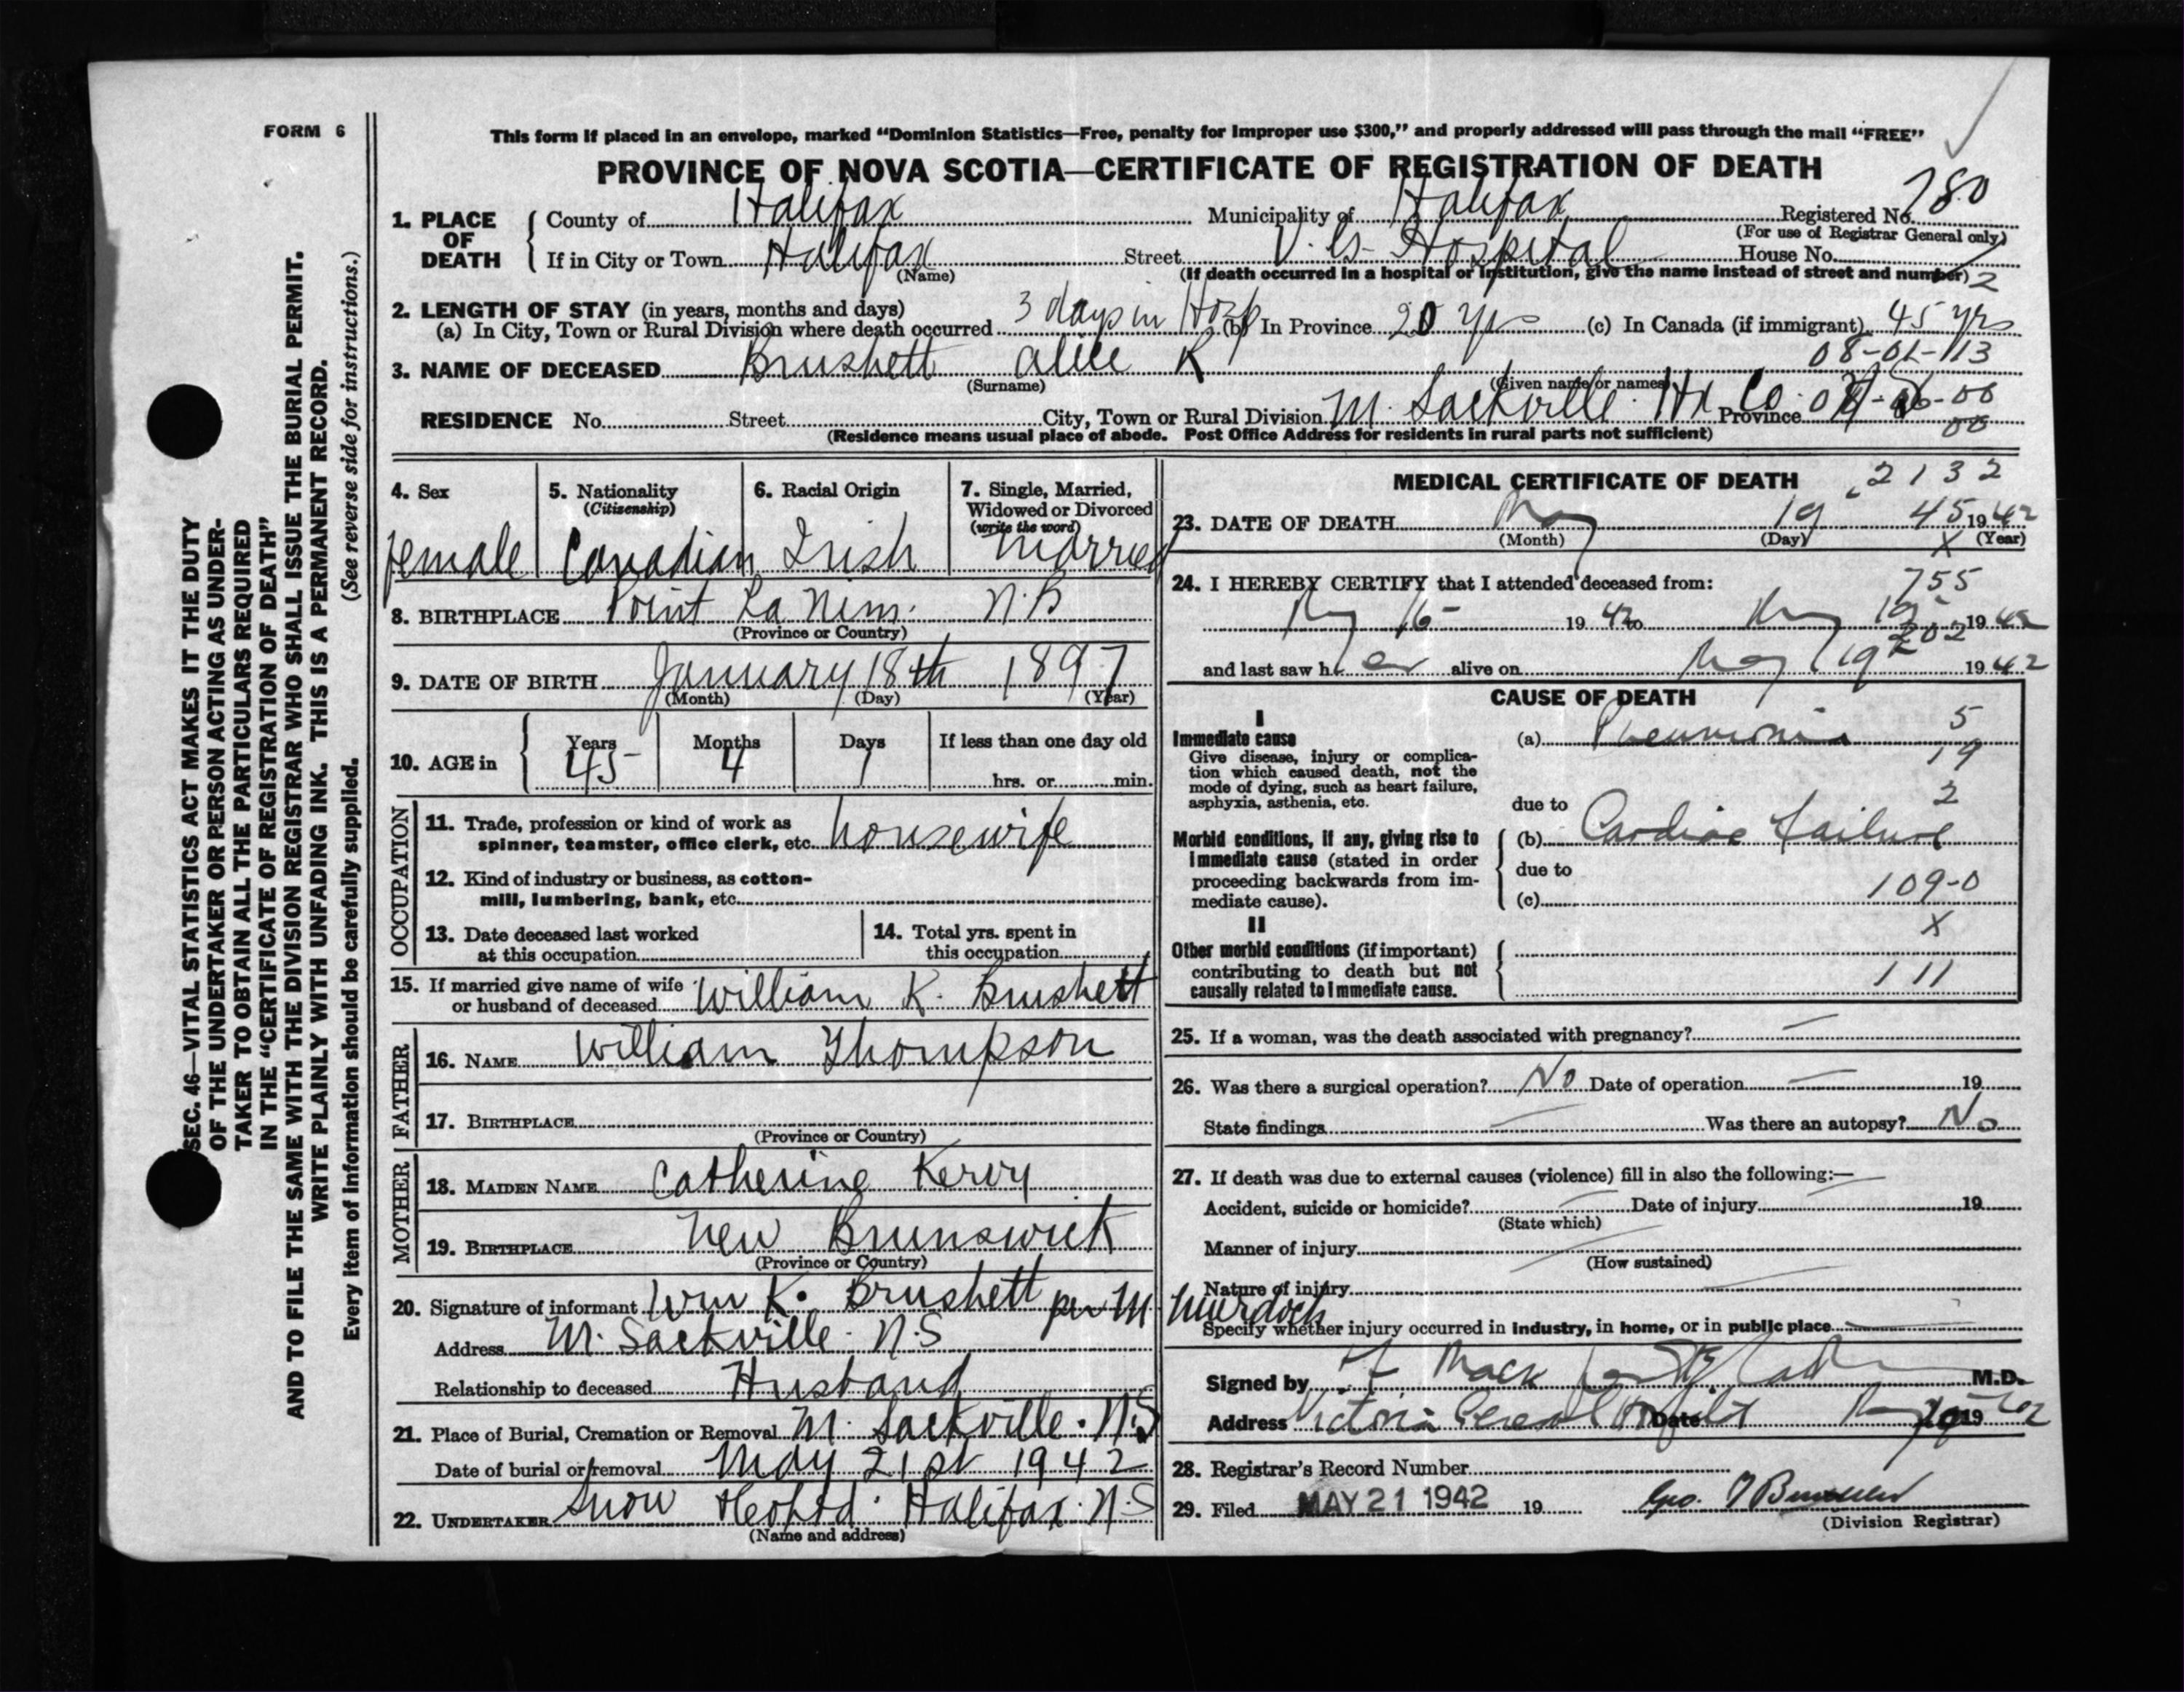 FORM 6
This form if placed in an envelope, marked “Dominion Statistics—Free, penalty for improper use $300,” and properly addressed will pass through the mail “FREE”
PROVINCE OF NOVA SCOTIA—CERTIFICATE OF REGISTRATION OF DEATH
1. PLACE OF DEATH { County of Halifax Municipality of Halifax Registered No. 780
(For use of Registrar General only)
If in City or Town Halifax Street V. G. Hospital House No.
(Name) (If death occurred in a hospital or institution, give the name instead of street and number) 2
2. LENGTH OF STAY (in years, months and days)
(a) In City, Town or Rural Division where death occurred 3 days in Hosp (b) In Province 20 yrs (c) In Canada (if immigrant) 45 yrs
08-01-113
3. NAME OF DECEASED Brushett Alice K
(Surname) (Given name or names)
RESIDENCE No. Street City, Town or Rural Division M. Sackville Hx Co. Province
00
(Residence means usual place of abode. Post Office Address for residents in rural parts not sufficient)
4. Sex female
5. Nationality (Citizenship) Canadian
6. Racial Origin Irish
7. Single, Married, Widowed or Divorced (write the word) married
8. BIRTHPLACE Point La Nim. N.B
(Province or Country)
9. DATE OF BIRTH January 18th 1897
(Month) (Day) (Year)
10. AGE in { Years 45 Months 4 Days 1 If less than one day old
hrs. or min.
OCCUPATION
11. Trade, profession or kind of work as
spinner, teamster, office clerk, etc. housewife
12. Kind of industry or business, as cotton-
mill, lumbering, bank, etc.
13. Date deceased last worked
at this occupation
14. Total yrs. spent in
this occupation
15. If married give name of wife
or husband of deceased William K. Brushett
FATHER
16. NAME William Thompson
17. BIRTHPLACE
(Province or Country)
MOTHER
18. MAIDEN NAME Catherine Kervy
19. BIRTHPLACE New Brunswick
(Province or Country)
20. Signature of informant Wm K. Brushett per M Murdoch
Address M. Sackville. N.S
Relationship to deceased Husband
21. Place of Burial, Cremation or Removal M. Sackville. N.S
Date of burial or removal May 21st 1942
22. UNDERTAKER Snow Halifax. N.S
(Name and address)
MEDICAL CERTIFICATE OF DEATH 2132
23. DATE OF DEATH May 19 45 1942
(Month) (Day) X (Year)
24. I HEREBY CERTIFY that I attended deceased from: 755
May 16 1942 to May 19 1942
202
and last saw her alive on May 19 1942
CAUSE OF DEATH
I
Immediate cause
Give disease, injury or complica-
tion which caused death, not the
mode of dying, such as heart failure,
asphyxia, asthenia, etc.
(a) Pneumonia 5
19
2
due to
Morbid conditions, if any, giving rise to
immediate cause (stated in order
proceeding backwards from im-
mediate cause).
(b) Cardiac failure
due to
(c) 109-0
X
II
Other morbid conditions (if important)
contributing to death but not
causally related to immediate cause.
111
25. If a woman, was the death associated with pregnancy? —
26. Was there a surgical operation? No Date of operation — 19
State findings — Was there an autopsy? No
27. If death was due to external causes (violence) fill in also the following:—
Accident, suicide or homicide? — Date of injury — 19
(State which)
Manner of injury —
(How sustained)
Nature of injury —
Specify whether injury occurred in industry, in home, or in public place —
Signed by Mack M.D.
Address Victoria General Hospital Date May 19 1942
28. Registrar's Record Number
29. Filed MAY 21 1942 19 Geo.
(Division Registrar)
SEC. 46—VITAL STATISTICS ACT MAKES IT THE DUTY
OF THE UNDERTAKER OR PERSON ACTING AS UNDER-
TAKER TO OBTAIN ALL THE PARTICULARS REQUIRED
IN THE “CERTIFICATE OF REGISTRATION OF DEATH”
AND TO FILE THE SAME WITH THE DIVISION REGISTRAR WHO SHALL ISSUE THE BURIAL PERMIT.
WRITE PLAINLY WITH UNFADING INK. THIS IS A PERMANENT RECORD.
Every item of information should be carefully supplied. (See reverse side for instructions.)